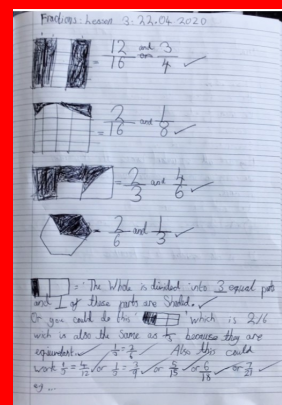 Fractions: Lesson 3. 22.04.2020
= 12/16 and 3/4 ✓
= 2/16 and 1/8 ✓
= 2/3 and 4/6 ✓
= 2/6 and 1/3 ✓
= 'The Whole is divided into 3 equal parts
and 1 of these parts are Shaded. ✓
Or you could do this' which is 2/6
wich is also the same as 1/3 because they are
equivalent. ✓ 1/3 = 2/6 ✓ Also this could
work 1/3 = 4/12 ✓ or 1/3 = 3/9 ✓ or 5/15 ✓ or 6/18 ✓ or 7/21 ✓
eg ...